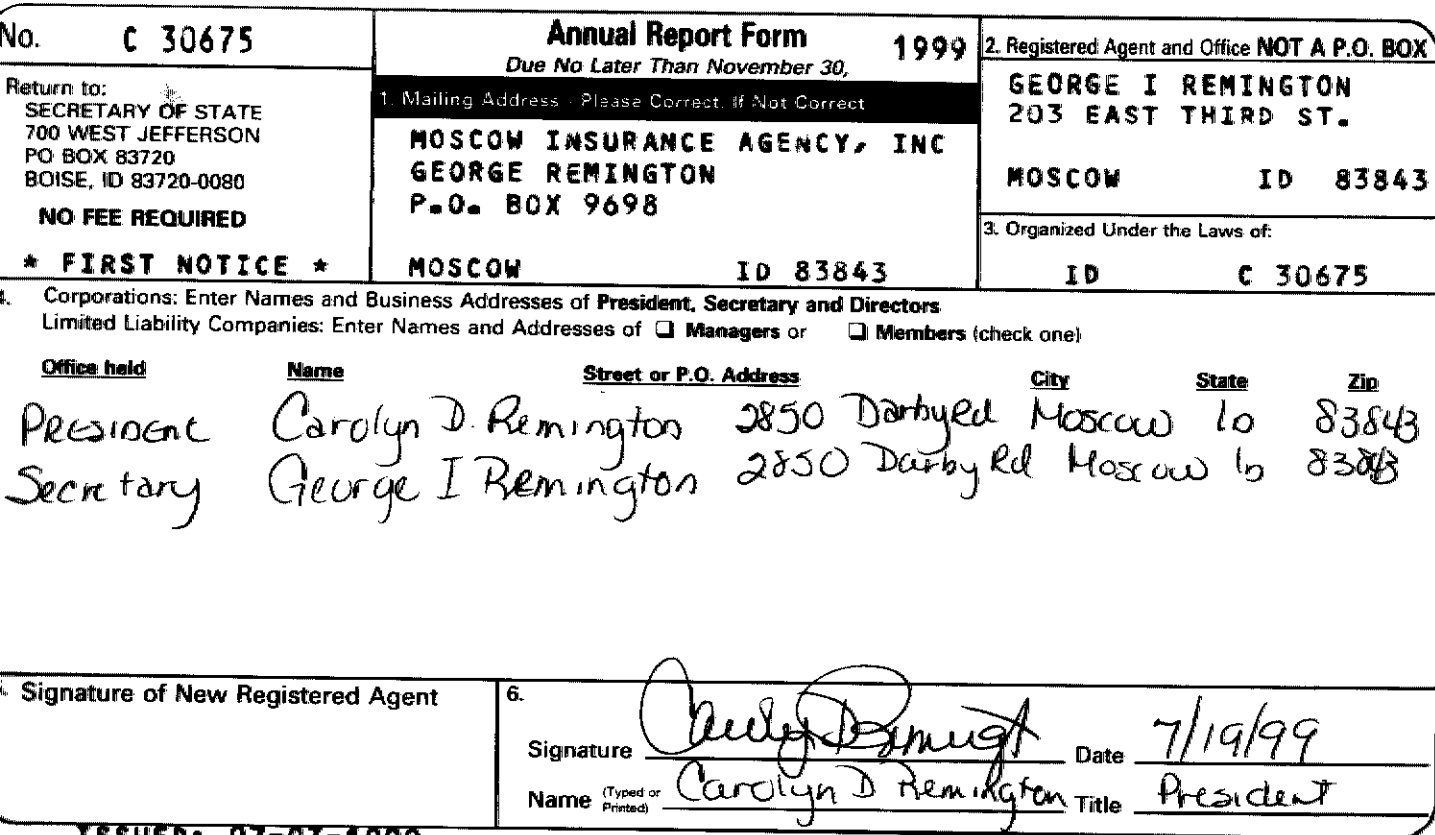 No. C 30675
Return to:
SECRETARY OF STATE
700 WEST JEFFERSON
PO BOX 83720
BOISE, ID 83720-0080
NO FEE REQUIRED
* FIRST NOTICE *
Annual Report Form 1999
Due No Later Than November 30,
1. Mailing Address - Please Correct, If Not Correct
MOSCOW INSURANCE AGENCY, INC
GEORGE REMINGTON
P.O. BOX 9698
MOSCOW ID 83843
2. Registered Agent and Office NOT A P.O. BOX
GEORGE I REMINGTON
203 EAST THIRD ST.
MOSCOW ID 83843
3. Organized Under the Laws of:
ID C 30675
4. Corporations: Enter Names and Business Addresses of President, Secretary and Directors
Limited Liability Companies: Enter Names and Addresses of ☐ Managers or ☐ Members (check one)
Office held Name Street or P.O. Address City State Zip
President Carolyn D. Remington 2850 Darby Rd Moscow ID 83843
Secretary George I Remington 2850 Darby Rd Moscow ID 83843
Signature of New Registered Agent
6.
Signature Date 7/19/99
Name (Typed or Printed) Carolyn D Remington Title President
ISSUED: 07-07-1999